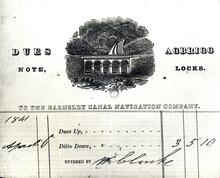 DUES AGBRIGG
NOTE, LOCKS.
TO THE BARNSLEY CANAL NAVIGATION COMPANY.
1841 Dues Up,
April 6 Ditto Down, 3 5 10
ENTERED BY